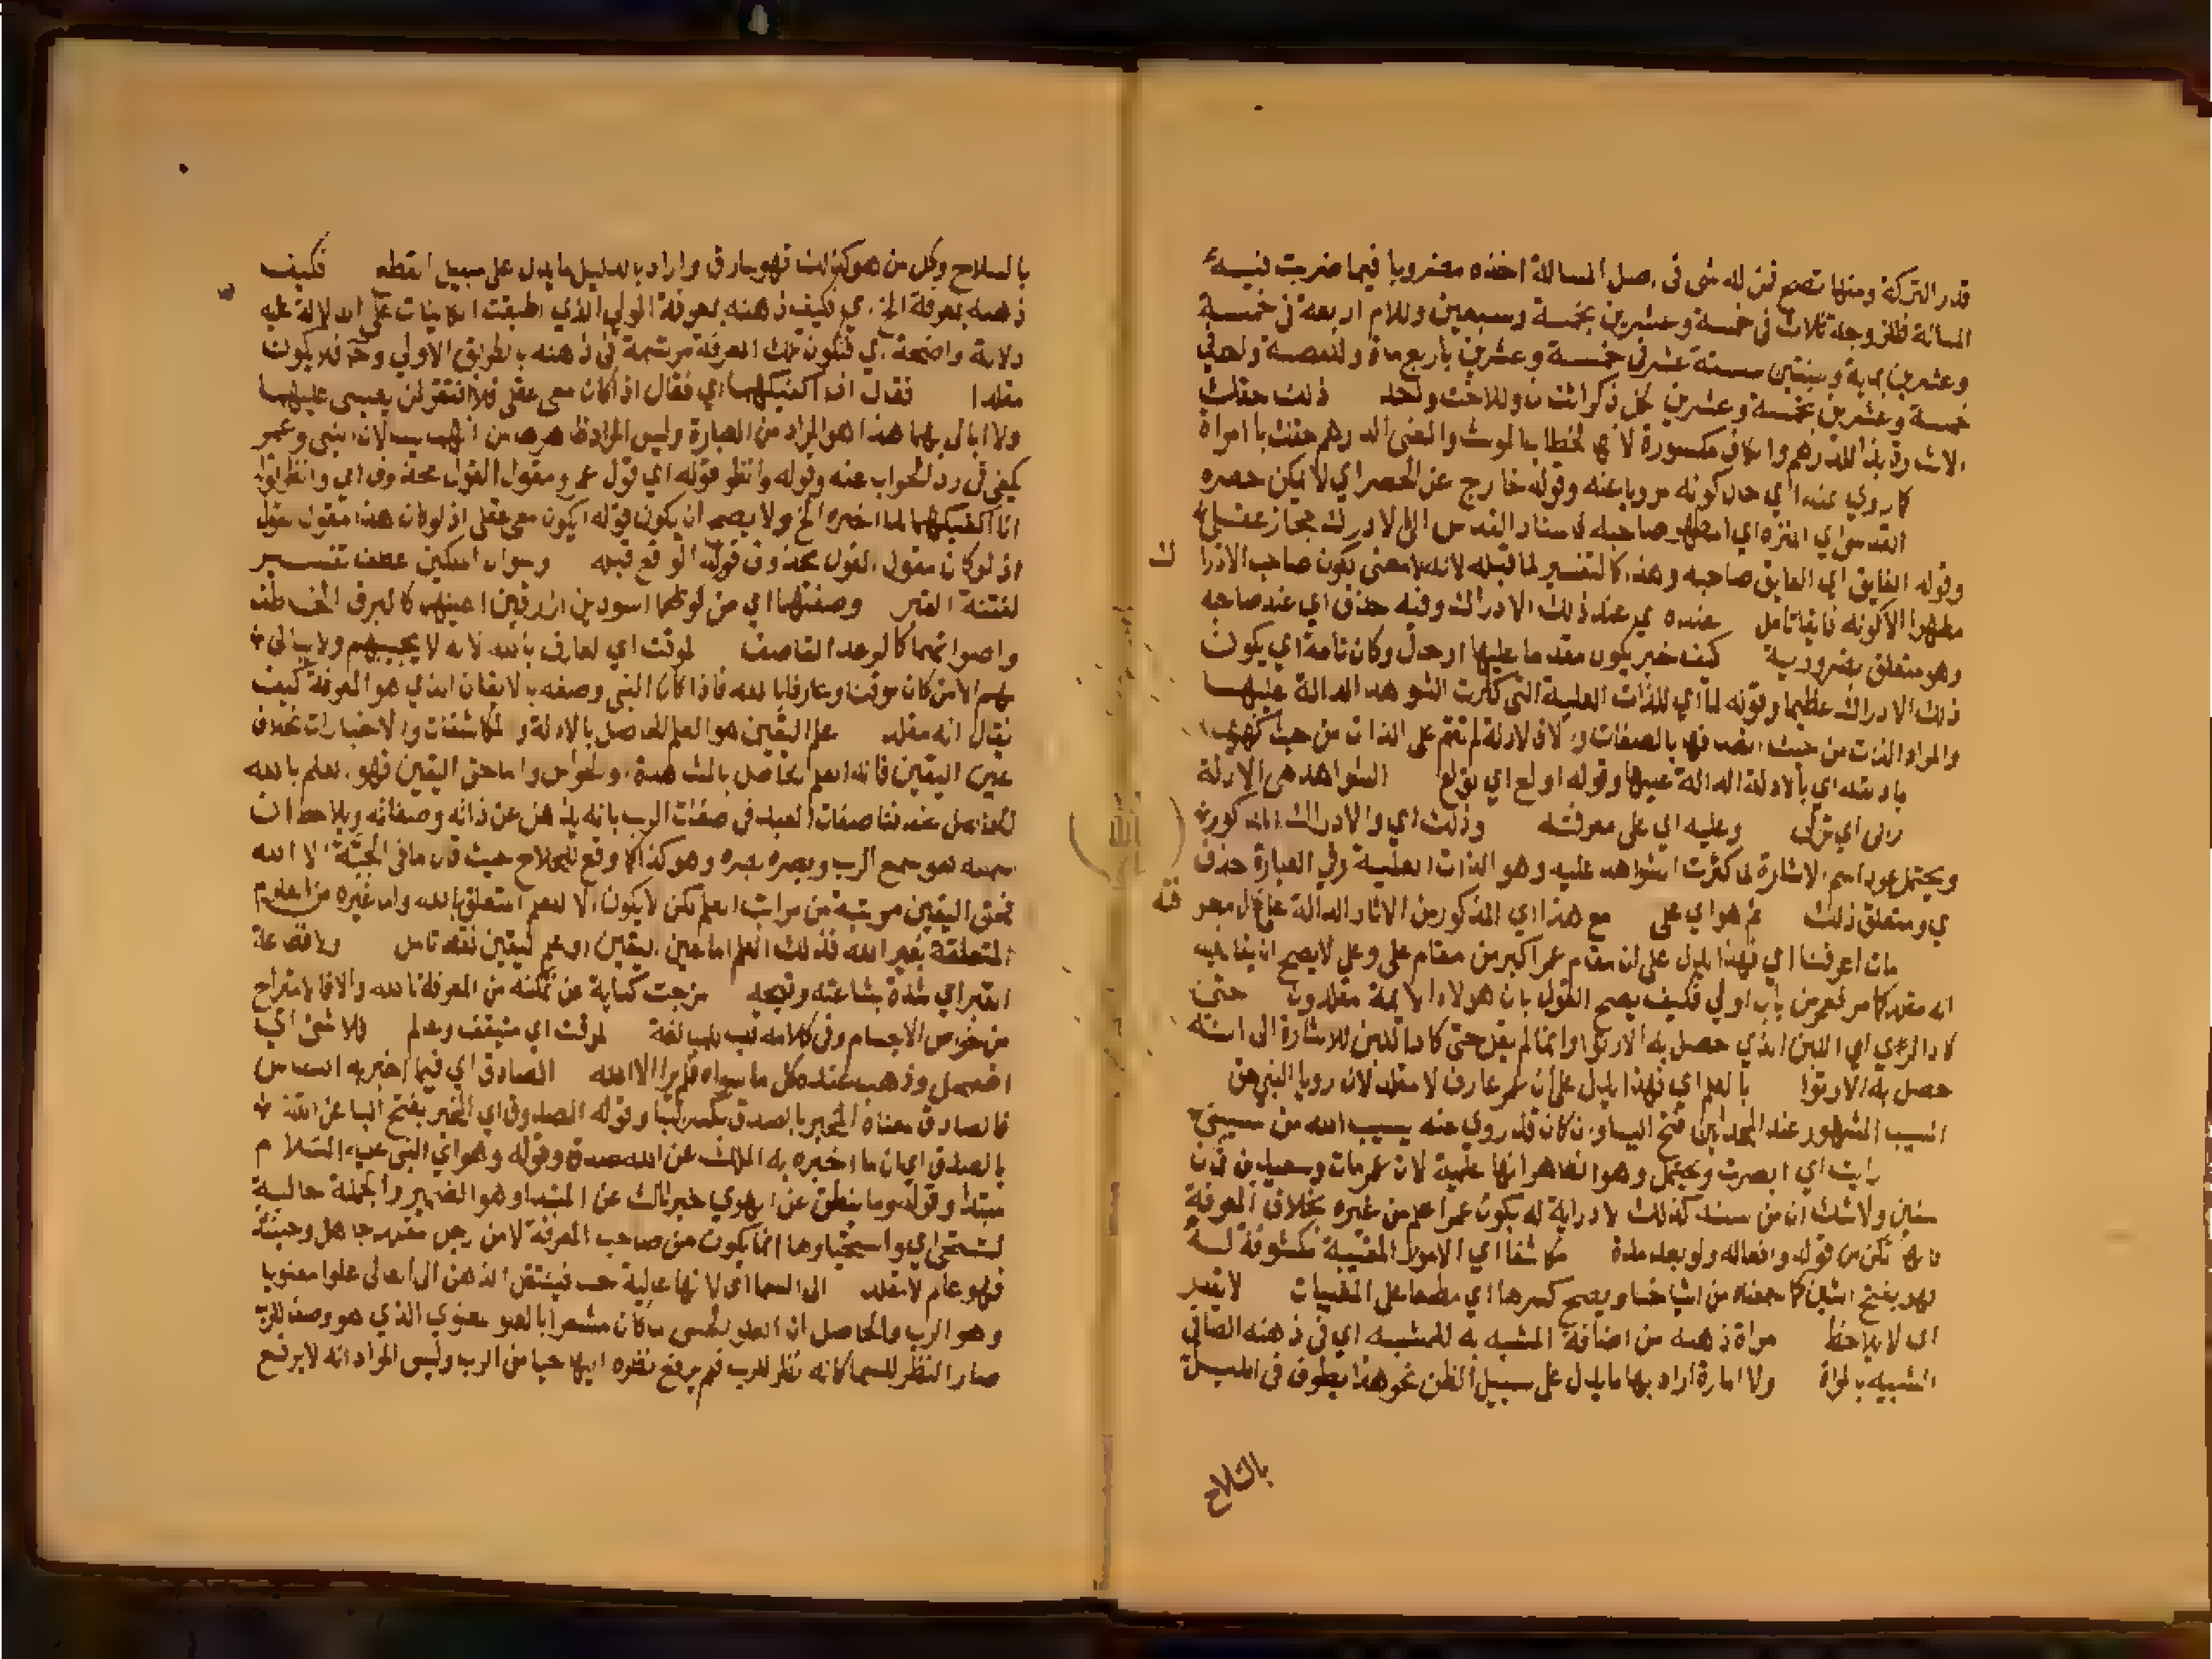 قدر التركة ومنها تصح فمن له شي في اصل المسالة اخذه مضروبا فيما ضربت فيه
المسالة فللزوجة ثلاث في خمسة وعشرين بخمسة وسبعين وللام اربعة في خمسة
وعشرين بماية وللبنتين ستة عشر في خمسة وعشرين باربع ماة وللعصبة واحد في
خمسة وعشرين بخمسة وعشرين لكل ذكر اثنان وللاخت واحد ذلك حقك
الاشارة بذا للدرهم والكاف مكسورة لانها لخطاب المونث والمعنى الدرهم حقك يا امراة
كما روي عنه اي حال كونه مرويا عنه وقوله خارج عن الحصر اي لا يمكن حصره
القدسي اي المنزه اي المطهر صاحبه فاسناد القدس الى الادراك مجاز عقلي
وقوله الفايق اي الفايق صاحبه وهذا كالتفسير لما قبله لانه لا معنى لكون صاحب الادراك
مطهرا الا كونه فايقا تامل عنده اي عند ذلك الادراك وفيه حذف اي عند صاحبه
وهو متعلق بضرورية كيف خبر يكون مقدما عليها او حال وكان تامة اي يكون
ذلك الادراك عظيما وقوله لما اي للذات العلية التي كثرت الشواهد الدالة عليها
والمراد الذات من حيث اتصافها بالصفات والا فالادلة لم تقم على الذات من حيث كنهها
بادلته اي بالادلة الدالة عليها وقوله اولع اي تولع الشواهد هي الادلة
رقى اي ترقى وعليه اي على معرفته وذلك اي والادراك المذكور
ويحتمل عود اسم الاشارة لما كثرت الشواهد عليه وهو الذات العلية وفي العبارة حذف
اي ومتعلق ذلك ثم هو اي على مع هذا اي المذكور من الاثار الدالة على كمال معرفته
مات اعرفنا اي فهذا يدل على ان مقام عمر اكبر من مقام علي وعلي لا يصح ان يقال فيه
انه مقلد كما مر فعمر من باب اولي فكيف يصح القول بان هولاء الايمة مقلدون حتى
لا ارى الري اي اللبن الذي حصل به الارتوا وانما لم يقل حتى كاد اللبن للاشارة الى انه
حصل به الارتوا بالعلم اي فهذا يدل على ان عمر عارف لا مقلد لان رويا النبي حق
المسيب المشهور عند المحدثين فتح اليا وان كان قد روي عنه يسيب الله من سيبني
رايت اي ابصرت ويحتمل وهو الظاهر انها علمية لان عمر مات وسعيد ابن ثمان
سنين ولا شك ان من سنه كذلك لا دراية له بكون عمر اعلم من غيره بخلاف المعرفة
فانها تكن من قوله وافعاله ولو بعد مدة مكاشفا اي الامور المغيبة مكشوفة له
فهو بفتح الشين كما سمعناه من اشياخنا ويصح كسرها اي مطلعا على المغيبات لا يعتبر
اي لا يلاحظ مراة ذهنه من اضافة المشبه به للمشبه اي في ذهنه الصافي
الشبيه بالمراة ولا امارة اراد بها ما يدل على سبيل الظن نحو هذا يطوف في الليل
بالسلاح
بالسلاح وكل من هو كذلك فهو سارق واراد بالدليل ما يدل على سبيل القطع فكيف
ذهنه بمعرفة الخ اي فكيف ذهنه بمعرفة المولي الذي اطبقت الكاينات على الدلالة عليه
دلالة واضحة اي فتكون تلك المعرفة مرتسمة في ذهنه بطريق الاولي وحـ فلا يكون
مقلدا فقال اذا اكفيكهما اي فقال اذا كان معي عقلي فلا افتقر لمن يعينني عليهما
ولا ابالي بهما هذا هو المراد من العبارة وليس المراد ظاهرها من انهما يسالان النبي وعمر
يكفي في رد الجواب عنه وقوله وانظر قوله اي قول عمر ومقول القول محذوف اي وانظر قوله
انا اكفيكهما لما اخبره الخ ولا يصح ان يكون قوله ايكون معي عقلي اذ لو كان هذا مقول القول
اذ لو كان مقول القول محذوف قوله الواقع قبله وسوال الملكين عطف تفسير
لفتنة القبر وصفتهما اي من كونهما اسودين ازرقين اعينهما كالبرق الخاطف
واصواتهما كالرعد القاصف الموقت اي العارف بالله لانه لا يجيبهم ولا يبالي
بهم الا من كان موقنا وعارفا بالله فاذا كان النبي وصفه بالايقان الذي هو المعرفة كيف
يقال انه مقلد علم اليقين هو العلم الحاصل بالادلة والمكاشفات والاختبارات بخلاف
عين اليقين فانه العلم الحاصل بالمشاهدة والحواس واما حق اليقين فهو العلم بالله
الحاصل عند فنا صفات العبد في صفات الرب بانه يذهل عن ذاته وصفاته ويلاحظ ان
سمعه هو سمع الرب وبصره بصره وهو كذا كما وقع للحلاج حيث قال ما في الجبة الا الله
فحق اليقين مرتبة من مراتب العلم لكن لا يكون الا العلم المتعلق بالله واما غيره من العلوم
المتعلقة بغير الله فذلك العلم اما عين اليقين او علم اليقين فقط تامل وفظاعة
القبر اي شدة بشاعته وقبحه مزجت كناية عن تمكنه من المعرفة بالله والا فالامتزاج
من خواص الاجسام وفي كلامه قلب للمبالغة الموقت اي متيقن وعالم فلا شئ اي
اضمحل وذهب عنده كل ما سواه فلم ير الا الله الصادق اي فيما اخبر به الناس
فالصادق معناه المخبر بالصدق بكسر البا وقوله الصدوق اي المخبر بفتح البا عن الله
بالصدق اي ان ما اخبره به الملك عن الله صدق وقوله وهو اي النبي عليه السلام
مبتدا وقوله وما ينطق عن الهوي خبر ثان عن المبتدا وهو الضمير والجملة حالية
لتستحي اي واستحياوها انما يكون من صاحب المعرفة لا من رجل مقلد جاهل وحينئذ
فهو عالم لا مقلد الى السما اي لانها عالية حسا فينتقل الذهن الى العالي علوا معنويا
وهو الرب والحاصل ان العلو الحسي لما كان مشعرا بالعلو المعنوي الذي هو وصف للرب
صار النظر للسما كانه نظر للرب فلم يرفع نظره اليها حيا من الرب وليس المراد انه لا يرفع